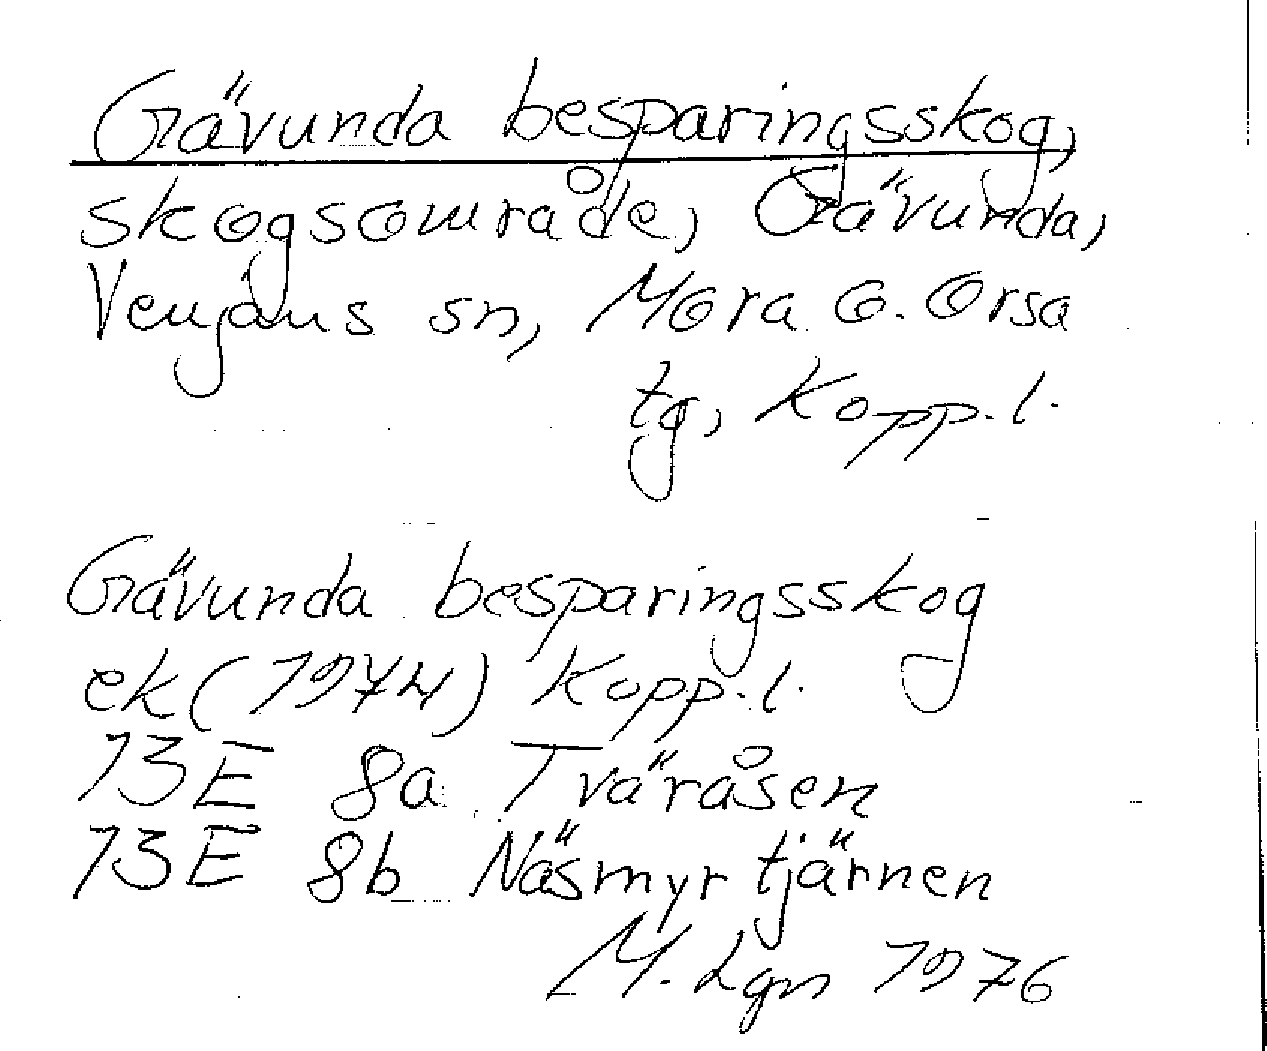 Gävunda besparingsskog,
skogsområde, Gävunda,
Venjans sn, Mora o. Orsa
tg, Kopp. l.
Gävunda besparingsskog
ek (1974) Kopp. l.
13E 8a Tväråsen
13E 8b Näsmyrtjärnen
M. Lgn 1976